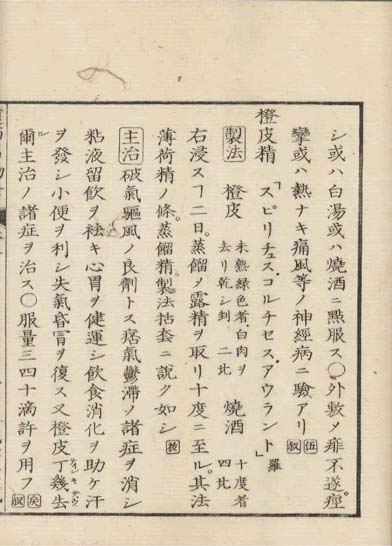 シ或ハ白湯或ハ燒酒ニ點服ス〇外敷メ痱不遂。痙
攣或ハ熱ナキ痛風等ノ神經病ニ驗アリ 伍 叙
橙皮精 「スピリチュス、コルチセス、アウラント」羅
製法 橙皮 未熟綠色者、白肉ヲ去リ乾シ剉、二比 燒酒 十度者四比
右浸スヿ二日。蒸餾メ露精ヲ取リ十度ニ至ル。其法
薄荷精ノ條。蒸餾精。製法括套ニ說ク如シ 按
主治 破氣驅風ノ良劑トス痞氣鬱滯ノ諸症ヲ消シ
粘液留飮ヲ袪キ心胃ヲ健運シ飮食消化ヲ助ケ汗
ヲ發シ小便ヲ利シ失氣昏冒ヲ復ス又橙皮丁幾去
爾主治ノ諸症ヲ治ス〇服量三四十滴許ヲ用フ 矦 叙